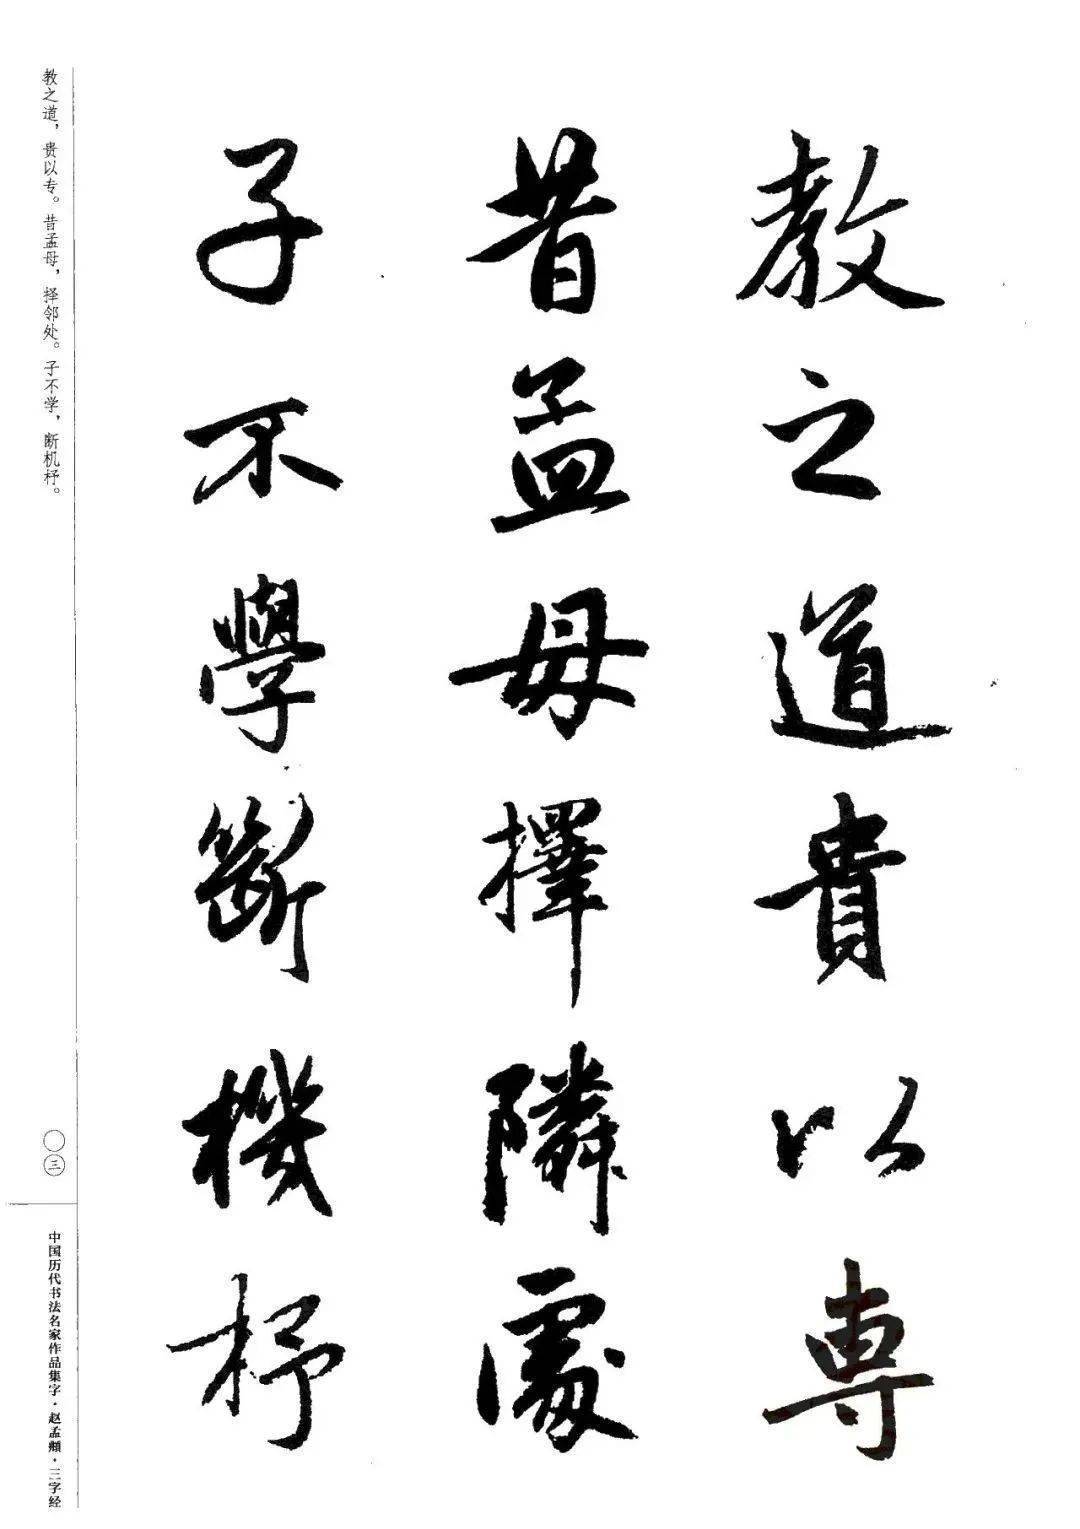 教之道貴以專
昔孟母擇隣處
子不學斷機杼
教之道，贵以专。昔孟母，择邻处。子不学，断机杼。
〇三
中国历代书法名家作品集字·赵孟頫·三字经